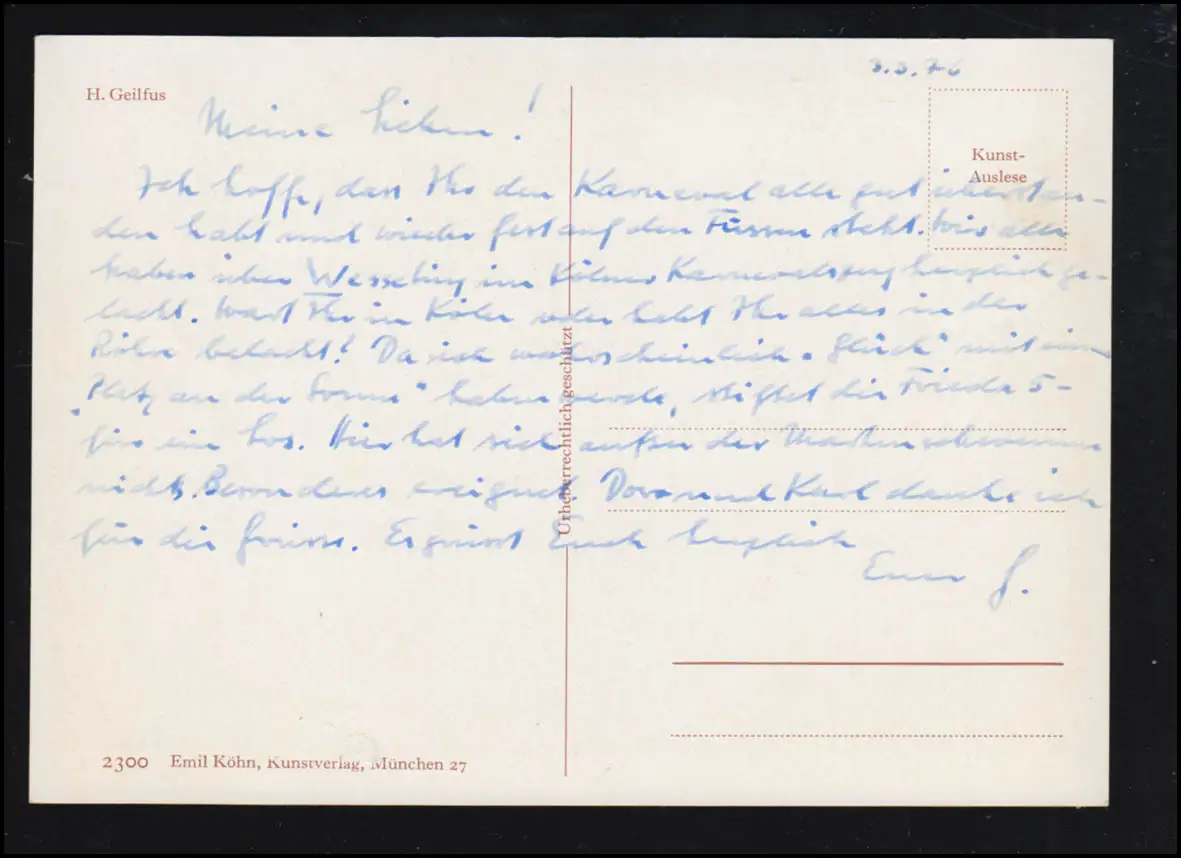 3.3.76
H. Geilfus
Kunst-
Auslese
Meine Lieben!
Ich hoffe, dass Ihr den Karneval alle gut überstan-
den habt und wieder fest auf den Füssen steht. Wir alle
haben über Wesseling im Kölner Karnevalszug herzlich ge-
lacht. Wart Ihr in Köln oder habt Ihr alles in der
Röhre belacht! Da ich wahrscheinlich "Glück" mit
"Platz an der Sonne" haben werde, stiftet die Frieda 5-
für ein Los. Hier hat sich ausser der
nichts Besonderes ereignet. Dora und Karl danke ich
für die Grüsse. Es grüsst Euch herzlich
Eure G.
Urheberrechtlich geschützt
2300 Emil Köhn, Kunstverlag, München 27